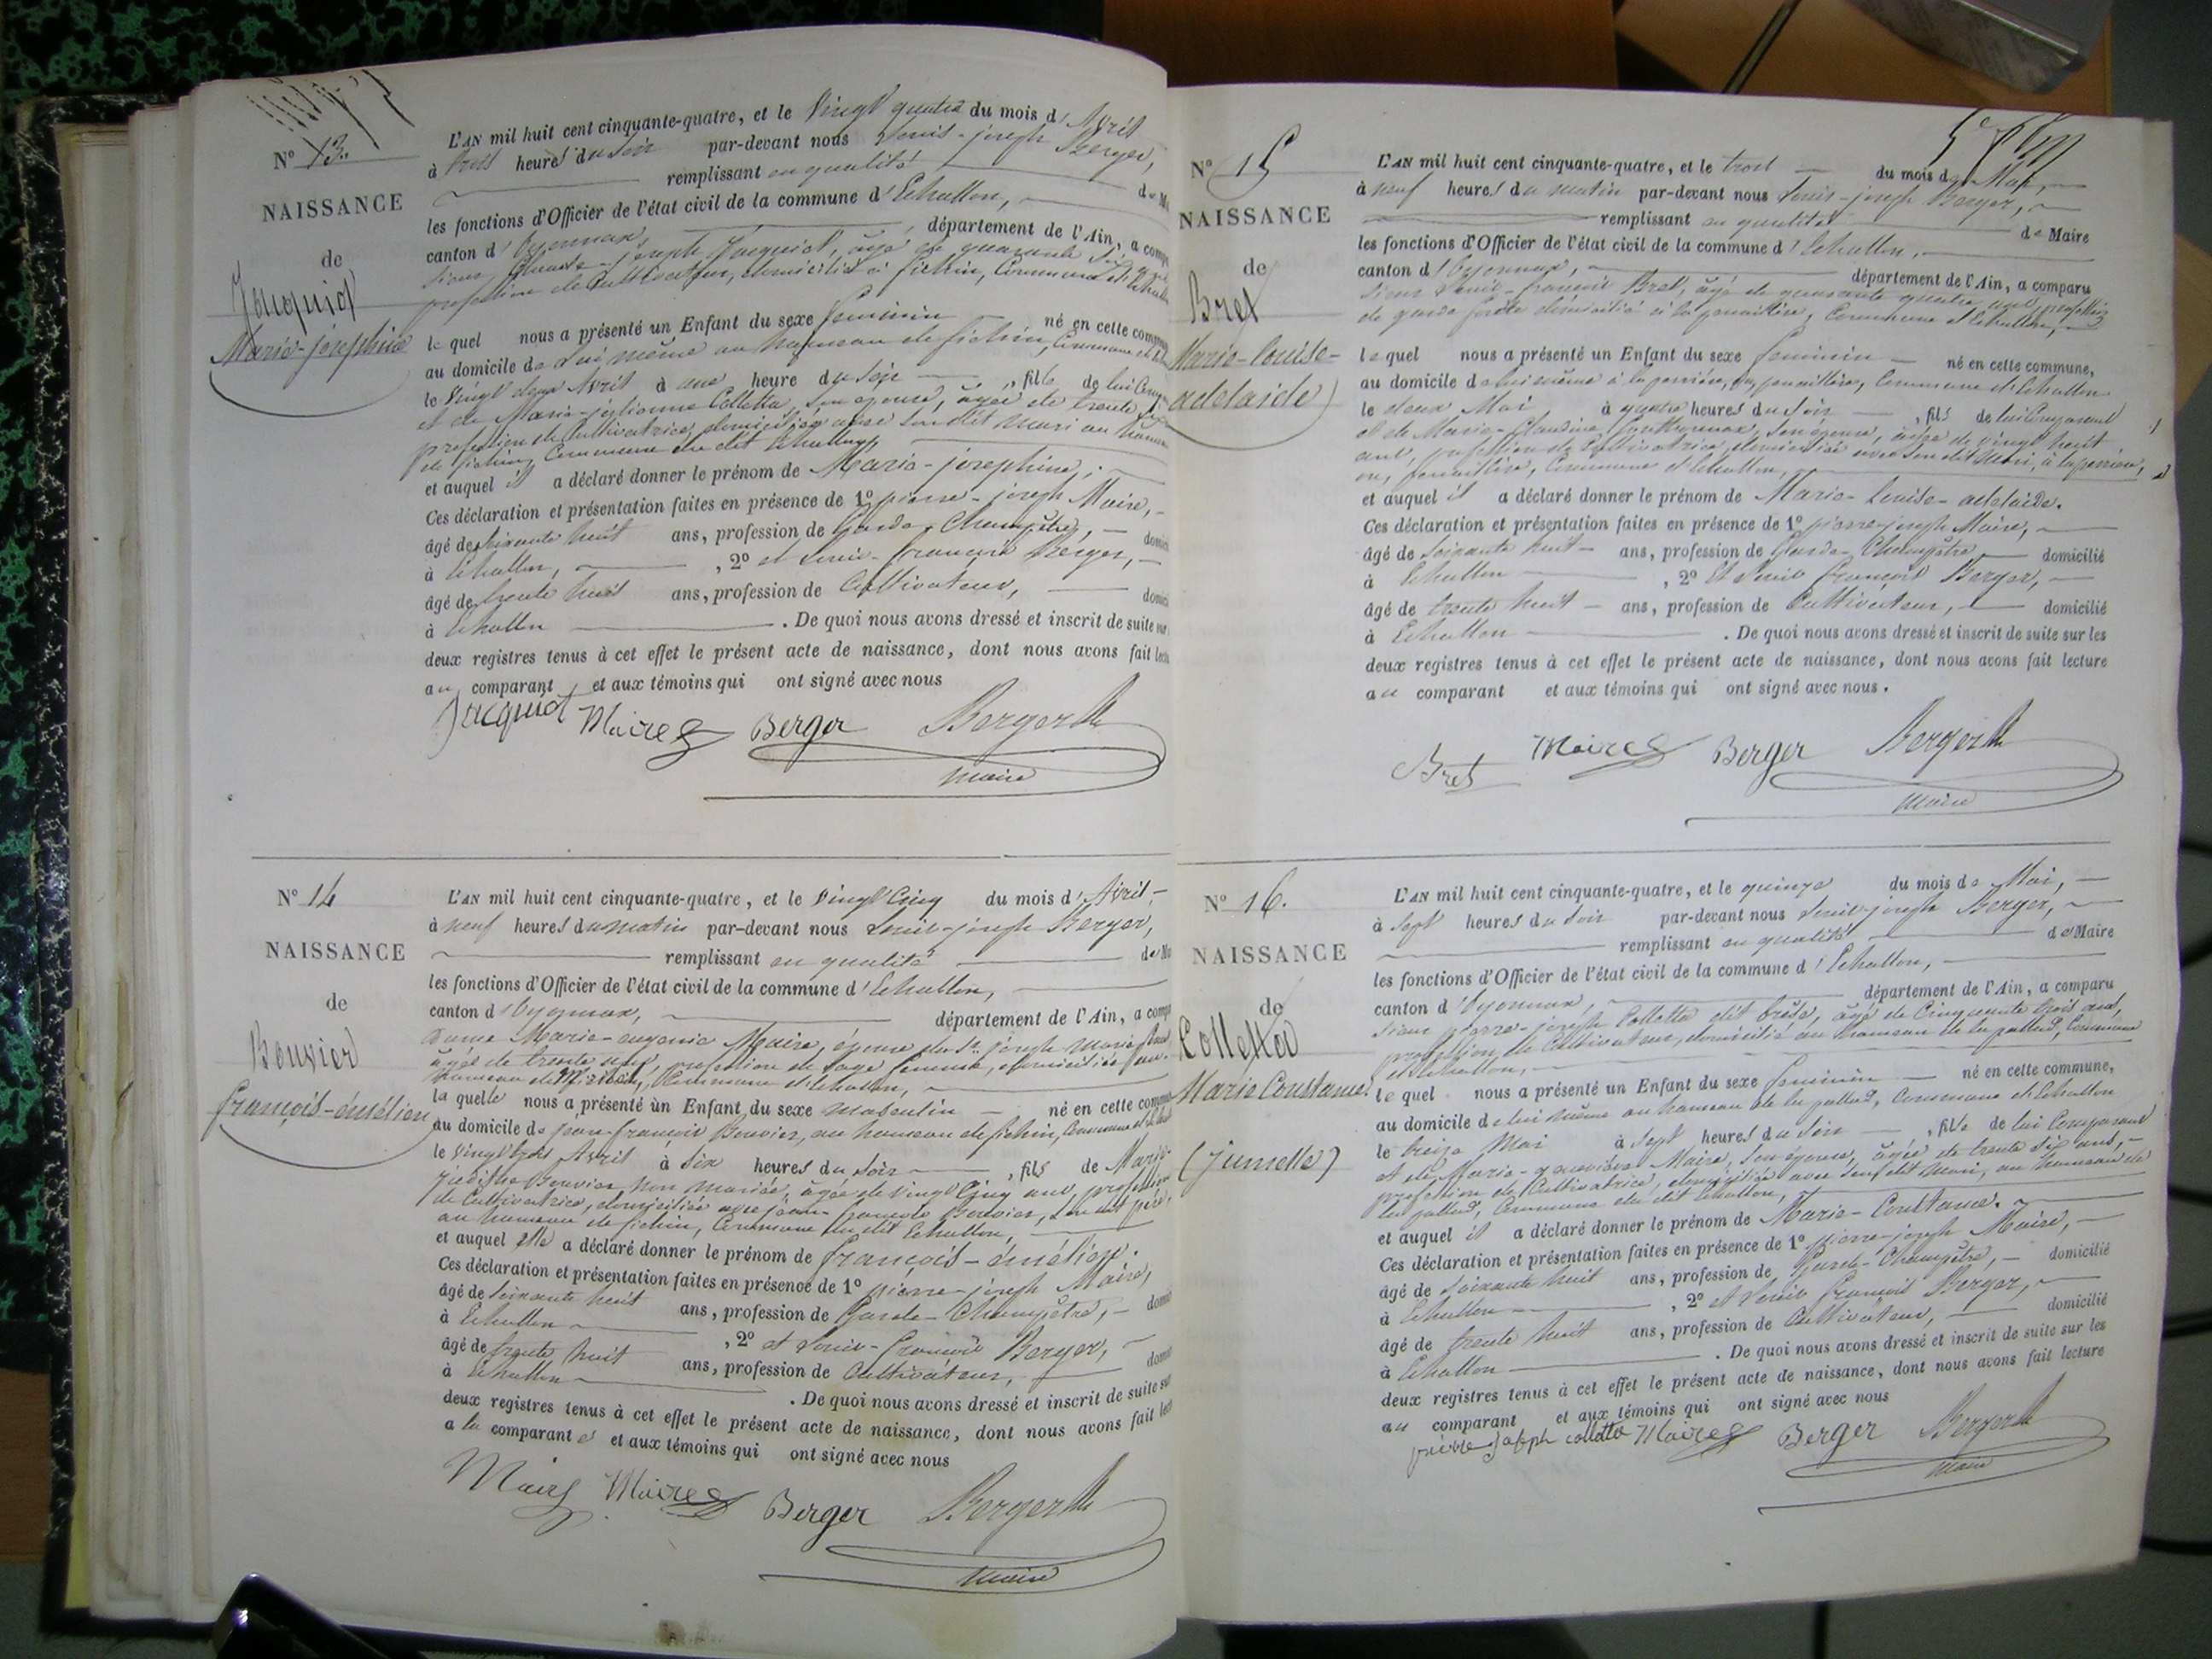 N° 13.
NAISSANCE
de
Jacquiot
Marie-josephine
L'AN mil huit cent cinquante-quatre, et le Vingt quatre du mois d'Avril
à trois heures du soir par-devant nous Louis-joseph Berger,
remplissant en qualité de M
les fonctions d'Officier de l'état civil de la commune d'Echallon,
canton d'Oyonnax, département de l'Ain, a comp
sieur Claude-joseph Jacquiot, âgé de quarante
profession de Cultivateur, domicilié à fichin, Commune d'Echallon
le quel nous a présenté un Enfant du sexe feminin né en cette commune
au domicile de lui même au hameau de fichin, Commune
le Vingt deux Avril à une heure du soir, fille de lui Comp
et de Marie-josephine Colletta, son épouse, âgée de trente
profession de Cultivatrice, domiciliée avec son dit mari au hameau
de fichin, Commune du dit Echallon,
et auquel il a déclaré donner le prénom de Marie-josephine,
Ces déclaration et présentation faites en présence de 1° pierre-joseph Maire,
âgé de soixante huit ans, profession de Garde-Champêtre, domici
à Echallon, , 2° et Louis-françois Berger,
âgé de trente huit ans, profession de Cultivateur, domici
à Echallon . De quoi nous avons dressé et inscrit de suite sur
deux registres tenus à cet effet le présent acte de naissance, dont nous avons fait lectu
au comparant et aux témoins qui ont signé avec nous
Jacquiot Maire Berger Berger
Maire
N° 14
NAISSANCE
de
Bouvier
françois-émélien
L'AN mil huit cent cinquante-quatre, et le Vingt Cinq du mois d'Avril
à neuf heures du matin par-devant nous Louis-joseph Berger,
remplissant en qualité de Ma
les fonctions d'Officier de l'état civil de la commune d'Echallon,
canton d'Oyonnax, département de l'Ain, a comp
Dame Marie-eugenie Maire, épouse du Sr joseph marie
âgée de trente ans, profession de sage femme, domiciliée au
hameau de Commune d'Echallon,
la quelle nous a présenté un Enfant du sexe masculin né en cette comm
au domicile de jean-françois Bouvier, au hameau de fichin, Commune
le Vingt trois Avril à six heures du soir, fils de Marie-
Bouvier non mariée, âgée de vingt Cinq ans, profession
de Cultivatrice, domiciliée avec jean-françois Bouvier, son père,
au hameau de fichin, Commune du dit Echallon,
et auquel elle a déclaré donner le prénom de françois-émélien.
Ces déclaration et présentation faites en présence de 1° pierre-joseph Maire,
âgé de soixante huit ans, profession de Garde-Champêtre, domici
à Echallon , 2° et Louis-françois Berger,
âgé de trente huit ans, profession de Cultivateur, domici
à Echallon . De quoi nous avons dressé et inscrit de suite sur
deux registres tenus à cet effet le présent acte de naissance, dont nous avons fait lect
a la comparante et aux témoins qui ont signé avec nous
Maire Maire Berger Berger
Maire
N° 15
NAISSANCE
de
Bret
Marie-louise-
adelaide
L'AN mil huit cent cinquante-quatre, et le trois du mois de Mai,
à neuf heures du matin par-devant nous Louis-joseph Berger,
remplissant en qualité de Maire
les fonctions d'Officier de l'état civil de la commune d'Echallon,
canton d'Oyonnax, département de l'Ain, a comparu
sieur Louis-françois Bret, âgé de quarante quatre ans, profession
de garde forêts domicilié à la Commune d'Echallon,
le quel nous a présenté un Enfant du sexe feminin né en cette commune,
au domicile de lui même à la Commune d'Echallon
le deux Mai à quatre heures du soir, fils de lui Comparant
et de Marie-Claudine son épouse, âgée de vingt huit
ans, profession de Cultivatrice, domiciliée avec son dit mari, à
Commune d'Echallon,
et auquel il a déclaré donner le prénom de Marie-louise-adelaide.
Ces déclaration et présentation faites en présence de 1° pierre-joseph Maire,
âgé de soixante huit ans, profession de Garde-Champêtre, domicilié
à Echallon , 2° Et Louis françois Berger,
âgé de trente huit ans, profession de Cultivateur, domicilié
à Echallon . De quoi nous avons dressé et inscrit de suite sur les
deux registres tenus à cet effet le présent acte de naissance, dont nous avons fait lecture
au comparant et aux témoins qui ont signé avec nous.
Bret Maire Berger Berger
Maire
N° 16.
NAISSANCE
de
Colletta
Marie Constance.
(jumelle)
L'AN mil huit cent cinquante-quatre, et le quinze du mois de Mai,
à sept heures du soir par-devant nous Louis-joseph Berger,
remplissant en qualité de Maire
les fonctions d'Officier de l'état civil de la commune d'Echallon,
canton d'Oyonnax, département de l'Ain, a comparu
sieur pierre-joseph Colletta dit âgé de Cinquante trois ans,
profession de Cultivateur, domicilié au hameau de Commune
d'Echallon,
le quel nous a présenté un Enfant du sexe feminin né en cette commune,
au domicile de lui même au hameau de Commune d'Echallon
le treize Mai à sept heures du soir, fille de lui Comparant
et de Marie-genevieve Maire, son épouse, âgée de trente six ans,
profession de Cultivatrice, domiciliée avec son dit mari, au hameau de
Commune du dit Echallon,
et auquel il a déclaré donner le prénom de Marie-Constance.
Ces déclaration et présentation faites en présence de 1° pierre-joseph Maire,
âgé de soixante huit ans, profession de Garde-Champêtre, domicilié
à Echallon , 2° et Louis françois Berger,
âgé de trente huit ans, profession de Cultivateur, domicilié
à Echallon . De quoi nous avons dressé et inscrit de suite sur les
deux registres tenus à cet effet le présent acte de naissance, dont nous avons fait lecture
au comparant et aux témoins qui ont signé avec nous
pierre joseph colletta Maire Berger Berger
Maire